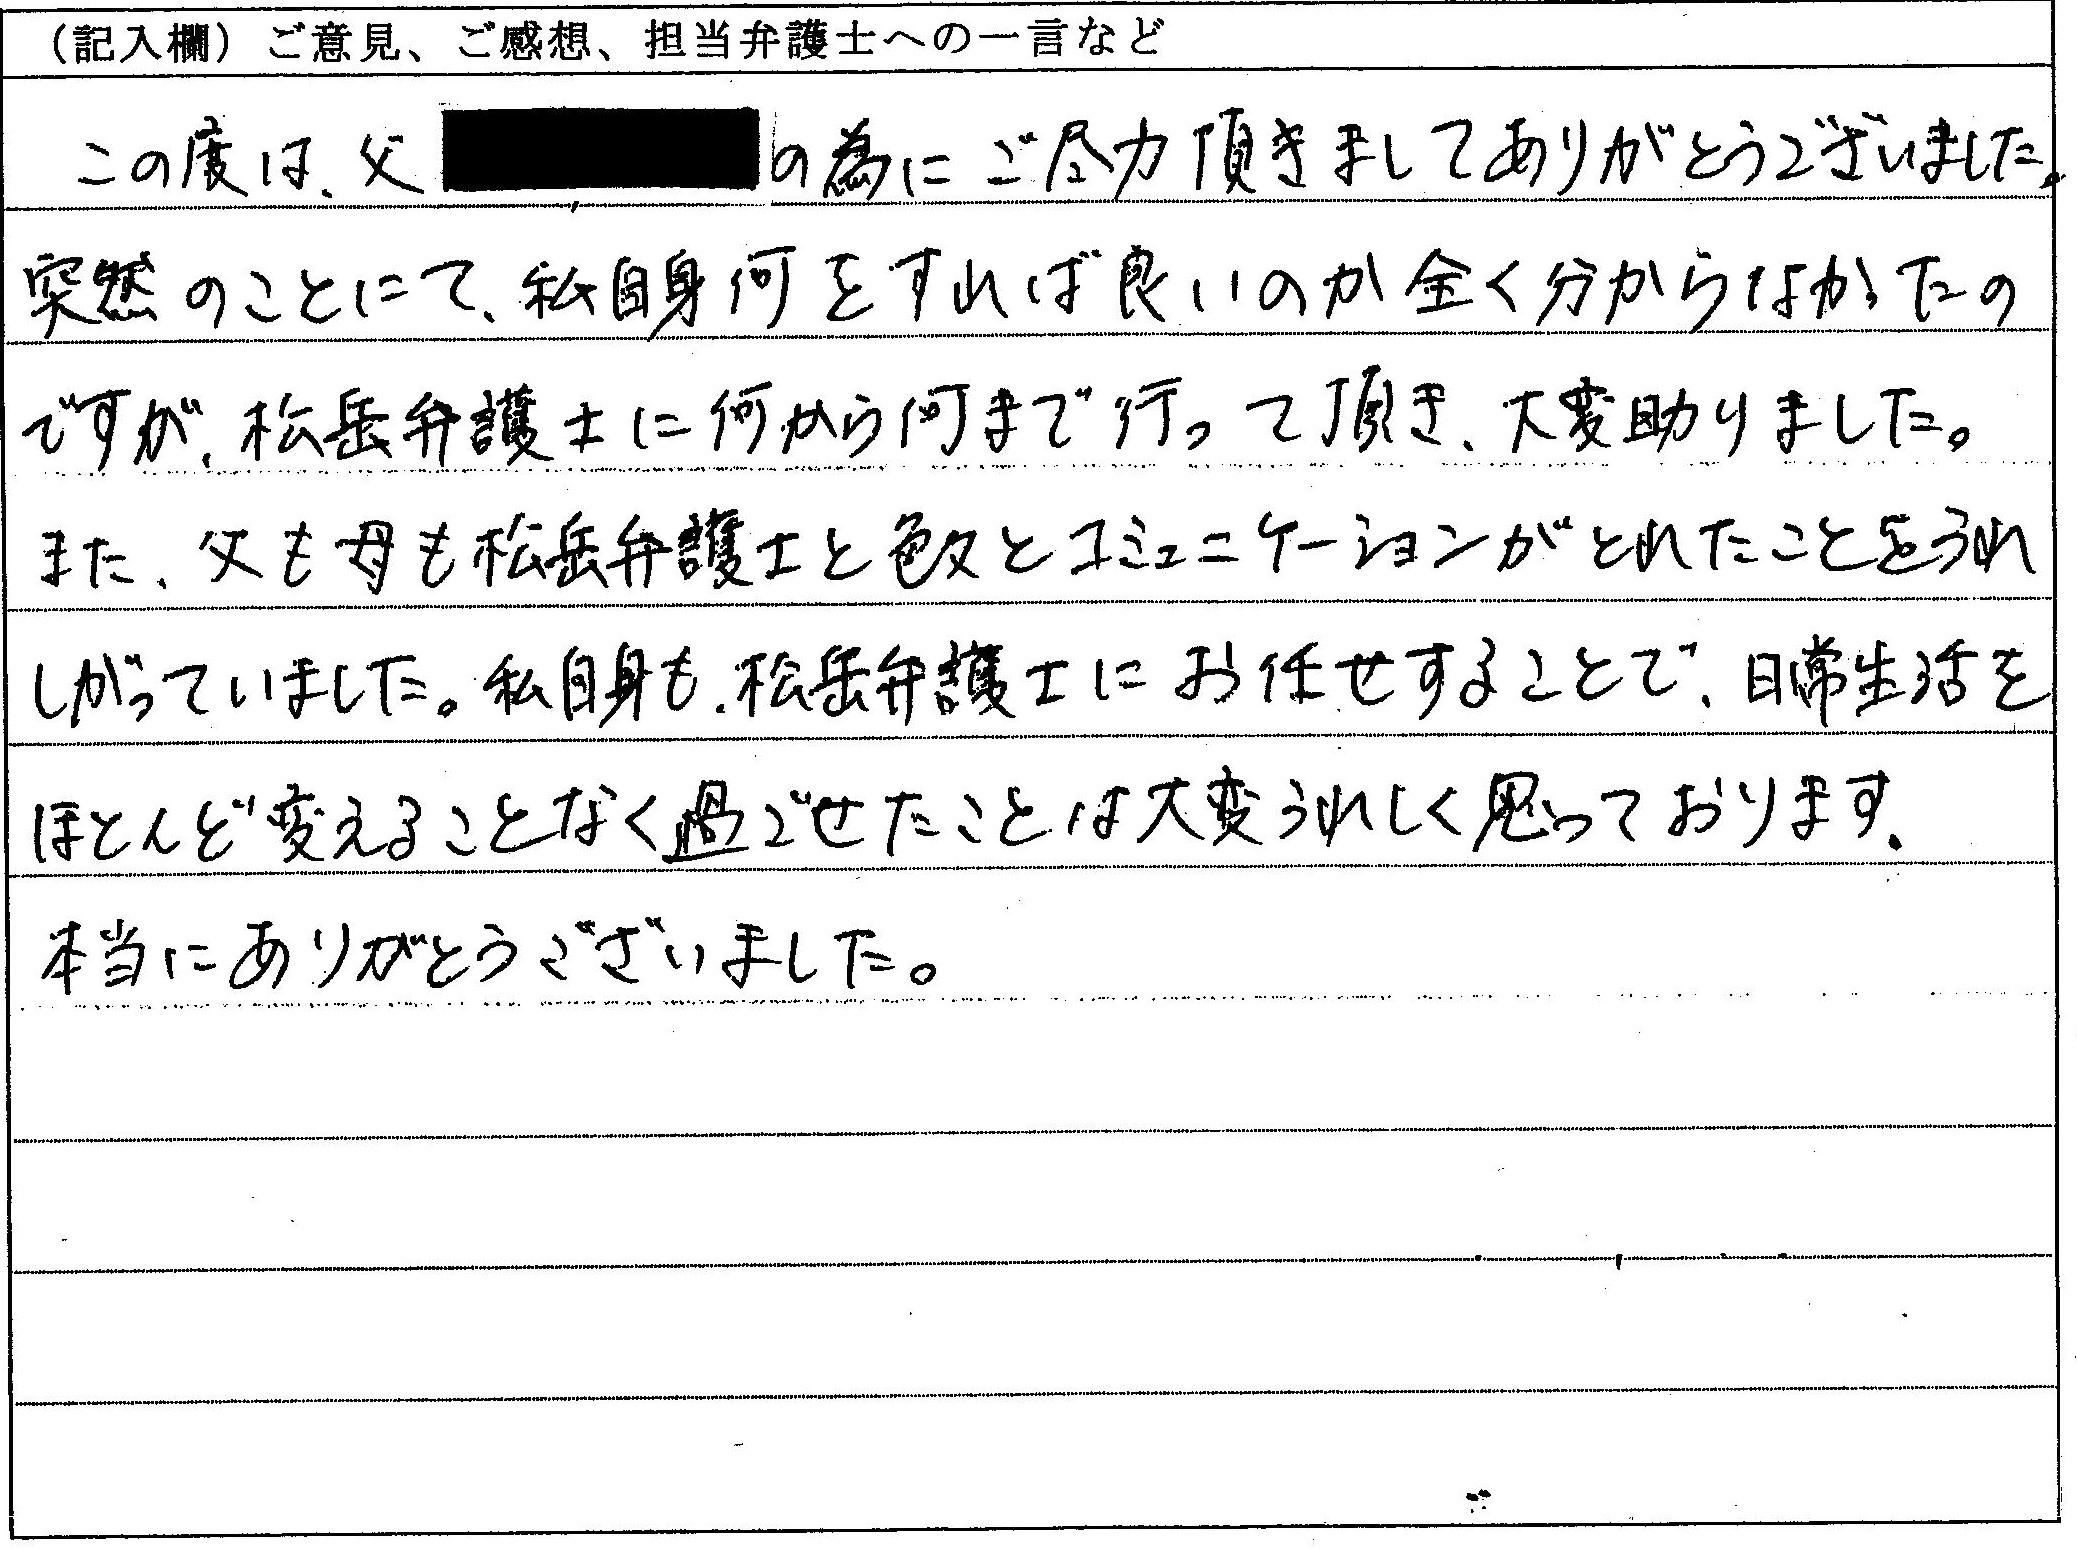 (記入欄)ご意見、ご感想、担当弁護士への一言など
この度は、父の為にご尽力頂きましてありがとうございました。
突然のことにて、私自身何をすれば良いのか全く分からなかったの
ですが、松岳弁護士に何から何まで行って頂き、大変助りました。
また、父も母も松岳弁護士と色々とコミュニケーションがとれたことをうれ
しがっていました。私自身も、松岳弁護士にお任せすることで、日常生活を
ほとんど変えることなく過ごせたことは大変うれしく思っております。
本当にありがとうございました。